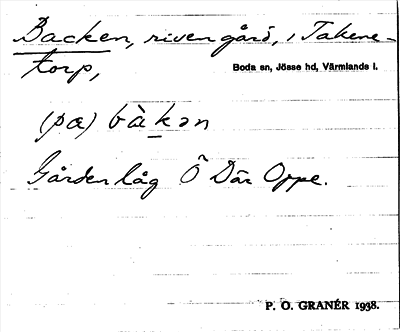 Backen, riven gård, i Takene-
torp,
Boda sn, Jösse hd, Värmlands l.
(pa) bàkən
Gården låg Ö Där Oppe.
P. O. GRANÉR 1938.